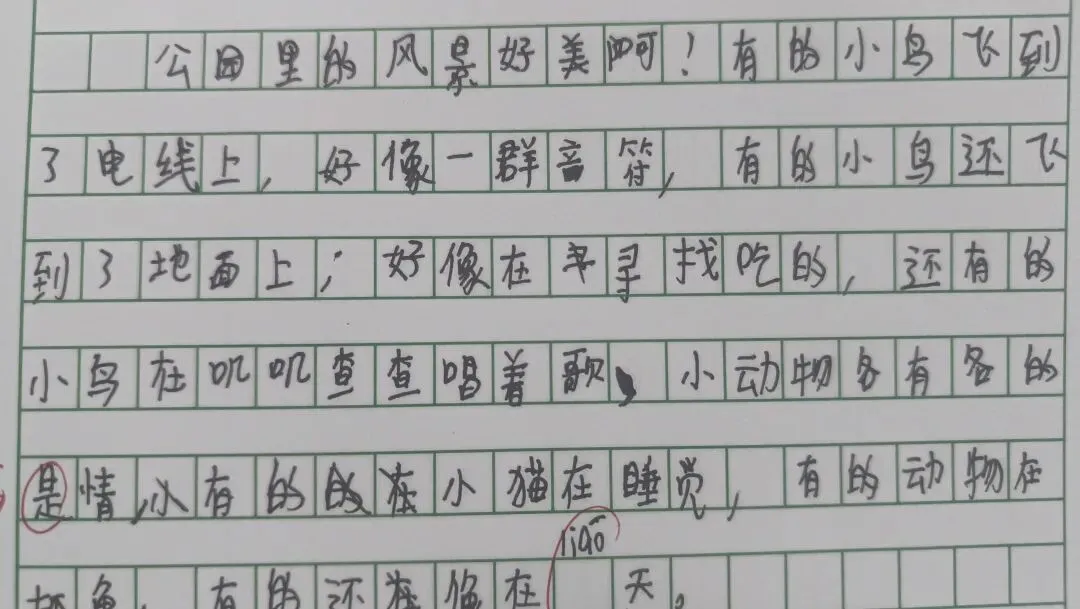 公园里的风景好美啊！有的小鸟飞到
了电线上，好像一群音符，有的小鸟还飞
到了地面上；好像在寻找吃的，还有的
小鸟在叽叽查查唱着歌、小动物各有各的
是情，小有的的在小猫在睡觉，有的动物在
liāo
有的还在像在 天。